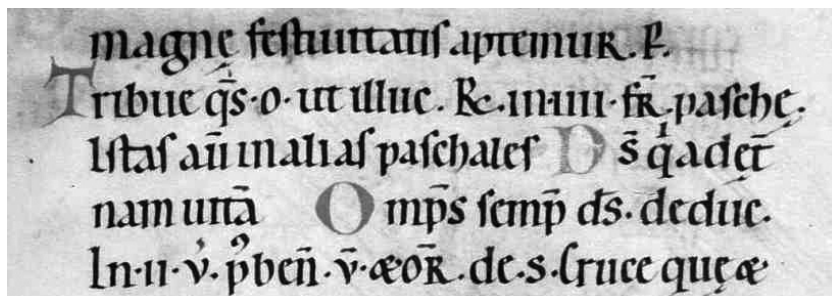 magnę festiuitatis aptemur. P.
Tribue q̄s·o·ut illuc. Rc.in·iiii·fr̄.pasche.
Istas au̅ in alias paschales D s̄ q̇ adęt̄
nam uitā O mp̄s semp̄ ds̄. deduc.
In·ii·v̇. p̓ben̄·v̄·æor̄.de.s.Cruce quę æ